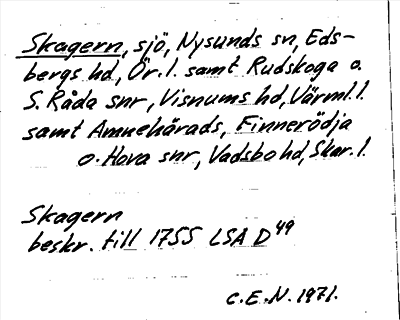 Skagern, sjö, Nysunds sn, Eds-
bergs hd, Ör. l. samt Rudskoga o.
S. Råda snr, Visnums hd, Värml. l.
samt Amnehärads, Finnerödja
o. Hova snr, Vadsbo hd, Skar. l.
Skagern
beskr. till 1755 LSA D 49
C.E.N. 1971.